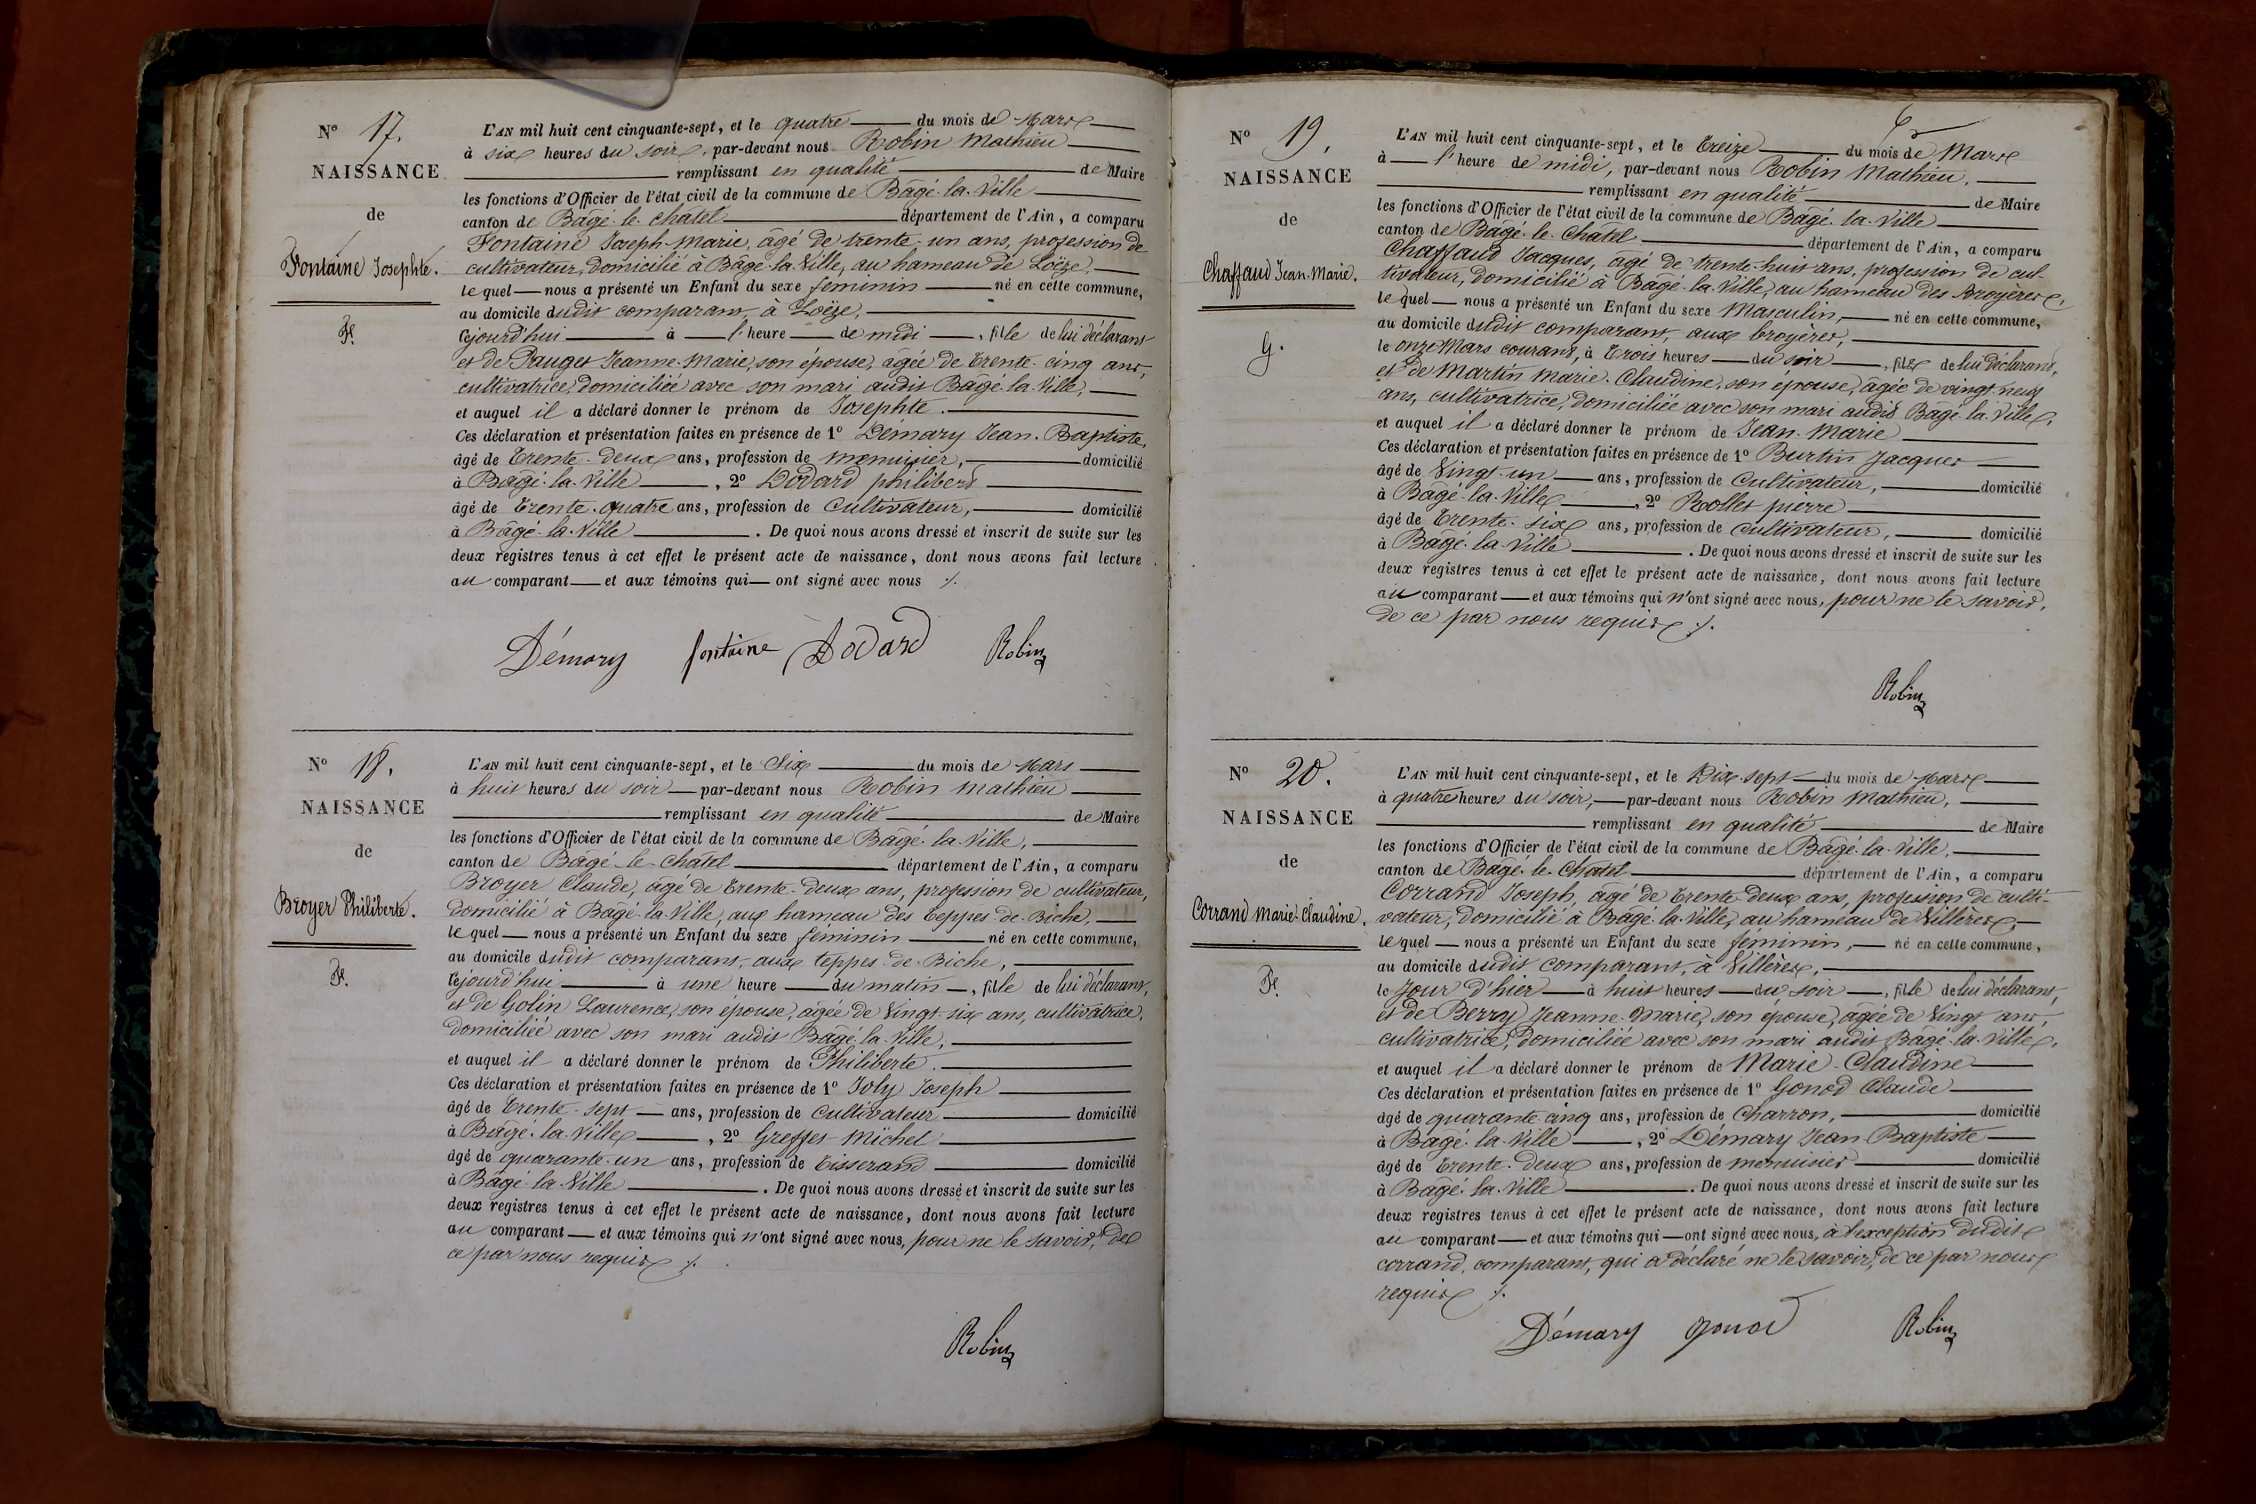 N° 17.
NAISSANCE
de
Fontaine Josephte.
F.
L'AN mil huit cent cinquante-sept, et le quatre du mois de Mars
à six heures du soir, par-devant nous Robin Mathieu
remplissant en qualité de Maire
les fonctions d'Officier de l'état civil de la commune de Bâgé-la-Ville
canton de Bâgé-le-Châtel département de l'Ain, a comparu
Fontaine Joseph-Marie, âgé de trente-un ans, profession de
cultivateur, domicilié à Bâgé-la-Ville, au hameau de Loëze,
lequel nous a présenté un Enfant du sexe féminin né en cette commune,
au domicile dudit comparant, à Loëze,
cejourd'hui à l'heure de midi, fille de lui déclarant
et de Pauget Jeanne-Marie, son épouse, âgée de trente-cinq ans,
cultivatrice, domiciliée avec son mari audit Bâgé-la-Ville,
et auquel il a déclaré donner le prénom de Josephte.
Ces déclaration et présentation faites en présence de 1° Démary Jean-Baptiste,
âgé de trente-deux ans, profession de menuisier, domicilié
à Bâgé-la-Ville, 2° Dodard philibert
âgé de trente-quatre ans, profession de cultivateur, domicilié
à Bâgé-la-Ville. De quoi nous avons dressé et inscrit de suite sur les
deux registres tenus à cet effet le présent acte de naissance, dont nous avons fait lecture
au comparant et aux témoins qui ont signé avec nous ./.
Démary fontaine Dodard Robin
N° 18.
NAISSANCE
de
Broyer Philiberte.
F.
L'AN mil huit cent cinquante-sept, et le Six du mois de Mars
à huit heures du soir par-devant nous Robin Mathieu
remplissant en qualité de Maire
les fonctions d'Officier de l'état civil de la commune de Bâgé-la-Ville,
canton de Bâgé-le-Châtel département de l'Ain, a comparu
Broyer Claude, âgé de trente-deux ans, profession de cultivateur,
domicilié à Bâgé-la-Ville, aux hameau des teppes-de-Biche,
lequel nous a présenté un Enfant du sexe féminin né en cette commune,
au domicile dudit comparant, aux teppes-de-Biche,
cejourd'hui à une heure du matin, fille de lui déclarant,
et de Golin Laurence, son épouse, âgée de Vingt-six ans, cultivatrice,
domiciliée avec son mari audit Bâgé-la-Ville,
et auquel il a déclaré donner le prénom de Philiberte.
Ces déclaration et présentation faites en présence de 1° Joly Joseph
âgé de trente-sept ans, profession de cultivateur domicilié
à Bâgé-la-Ville, 2° Greffet Michel
âgé de quarante-un ans, profession de tisserand domicilié
à Bâgé-la-Ville. De quoi nous avons dressé et inscrit de suite sur les
deux registres tenus à cet effet le présent acte de naissance, dont nous avons fait lecture
au comparant et aux témoins qui n'ont signé avec nous, pour ne le savoir, de
ce par nous requis ./.
Robin
N° 19.
NAISSANCE
de
Chaffaud Jean-Marie.
G.
L'AN mil huit cent cinquante-sept, et le treize du mois de Mars
à l'heure de midi, par-devant nous Robin Mathieu,
remplissant en qualité de Maire
les fonctions d'Officier de l'état civil de la commune de Bâgé-la-Ville
canton de Bâgé-le-Châtel département de l'Ain, a comparu
Chaffaud Jacques, âgé de trente-huit ans, profession de cul-
tivateur, domicilié à Bâgé-la-Ville, au hameau des Broyères,
lequel nous a présenté un Enfant du sexe Masculin, né en cette commune,
au domicile dudit comparant, aux broyères,
le onze Mars courant, à trois heures du soir, fils de lui déclarant,
et de Martin Marie-Claudine, son épouse, âgée de vingt-neuf
ans, cultivatrice, domiciliée avec son mari audit Bâgé-la-Ville,
et auquel il a déclaré donner le prénom de Jean-Marie
Ces déclaration et présentation faites en présence de 1° Burtin Jacques
âgé de Vingt-un ans, profession de Cultivateur, domicilié
à Bâgé-la-Ville, 2° Rollet pierre
âgé de trente-six ans, profession de cultivateur, domicilié
à Bâgé-la-Ville. De quoi nous avons dressé et inscrit de suite sur les
deux registres tenus à cet effet le présent acte de naissance, dont nous avons fait lecture
au comparant et aux témoins qui n'ont signé avec nous, pour ne le savoir,
de ce par nous requis ./.
Robin
N° 20.
NAISSANCE
de
Corrand Marie-Claudine.
F.
L'AN mil huit cent cinquante-sept, et le Dix-sept du mois de Mars
à quatre heures du soir, par-devant nous Robin Mathieu,
remplissant en qualité de Maire
les fonctions d'Officier de l'état civil de la commune de Bâgé-la-Ville,
canton de Bâgé-le-Châtel département de l'Ain, a comparu
Corrand Joseph, âgé de trente-deux ans, profession de culti-
vateur, domicilié à Bâgé-la-Ville, au hameau de Villères,
lequel nous a présenté un Enfant du sexe féminin, né en cette commune,
au domicile dudit comparant, à Villères,
le Jour d'hier à huit heures du soir, fille de lui déclarant,
et de Berry Jeanne-Marie, son épouse, âgée de Vingt ans,
cultivatrice, domiciliée avec son mari audit Bâgé-la-Ville,
et auquel il a déclaré donner le prénom de Marie-Claudine
Ces déclaration et présentation faites en présence de 1° Gonod Claude
âgé de quarante-cinq ans, profession de Charron, domicilié
à Bâgé-la-Ville, 2° Démary Jean-Baptiste
âgé de trente-deux ans, profession de menuisier domicilié
à Bâgé-la-Ville. De quoi nous avons dressé et inscrit de suite sur les
deux registres tenus à cet effet le présent acte de naissance, dont nous avons fait lecture
au comparant et aux témoins qui ont signé avec nous, à l'exception dudit
corrand, comparant, qui a déclaré ne le savoir, de ce par nous
requis ./.
Démary gonod Robin